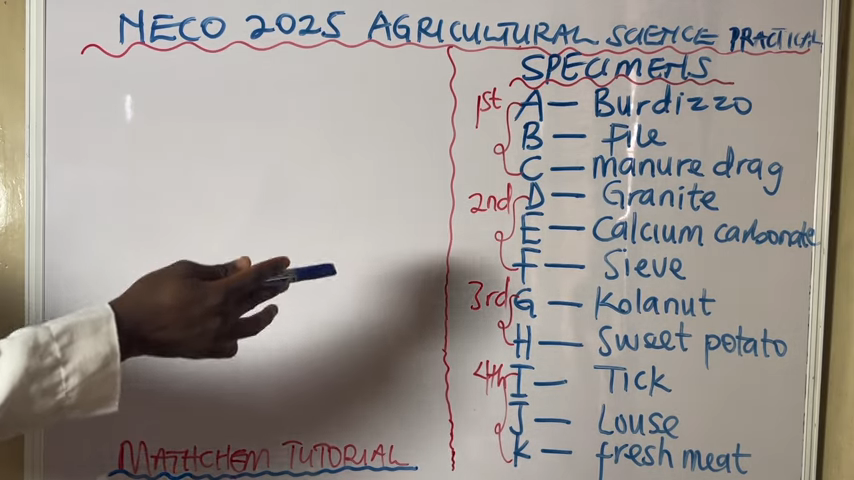 NECO 2025 AGRICULTURAL SCIENCE PRACTICAL
SPECIMENS
1st
A — Burdizzo
B — File
C — manure drag
2nd
D — Granite
E — Calcium carbonate
F — Sieve
3rd
G — Kolanut
H — Sweet potato
4th
I — Tick
J — Louse
K — fresh meat
MATHCHEM TUTORIAL